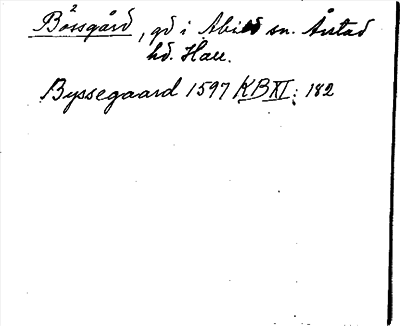 Bössgård, gd i Abild sn. Årstad
hd. Hall.
Byssegaard 1597 KB XI: 182